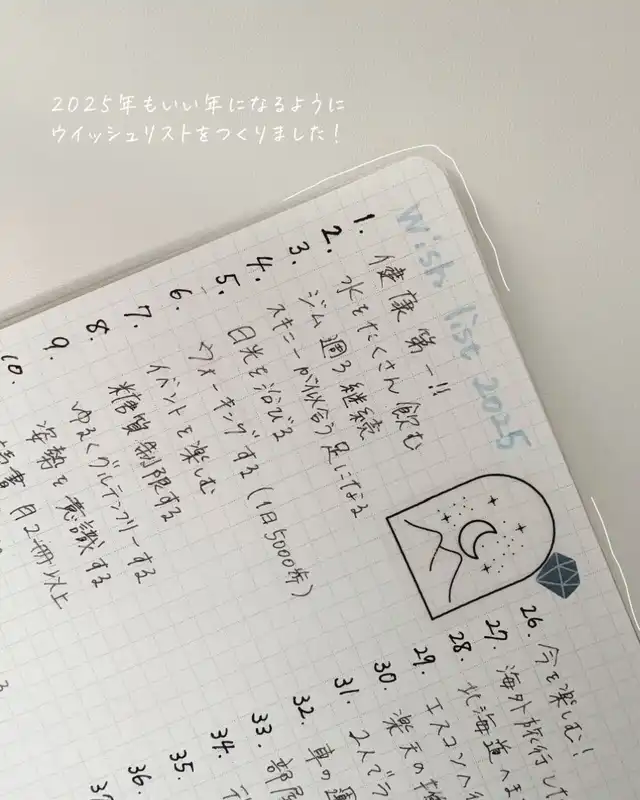 2025年もいい年になるように
ウイッシュリストをつくりました!
Wish list 2025
1. 健康第一!!
2. 水をたくさん飲む
3. ジム週3継続
4. スキニーが似合う足になる
5. 日光を浴びる
6. ウォーキングする(1日5000歩)
7. イベントを楽しむ
8. 糖質制限する
9. ゆるくグルテンフリーする
10. 姿勢を意識する
書 月2冊以上
26. 今を楽しむ!
27. 海外旅行した
28. 北海道へま
29. エスコンへ
30. 楽天の
31. 2人でラ
32. 車の運
33. 部屋
34.
35.
36.